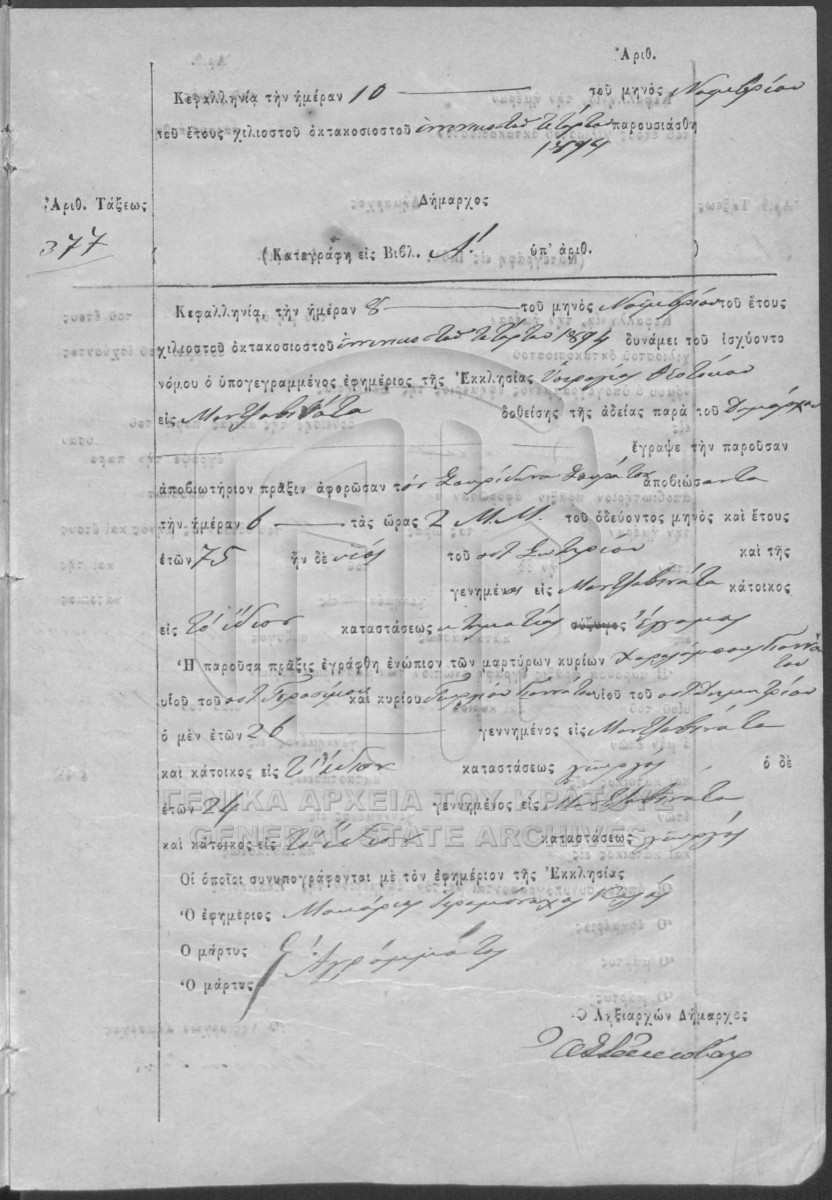 Ἀριθ.
Κεφαλληνίᾳ τὴν ἡμέραν 10 τοῦ μηνὸς Νοεμβρίου
τοῦ ἔτους χιλιοστοῦ ὀκτακοσιοστοῦ ἐννενηκοστοῦ τετάρτου παρουσιάσθη
1894
Ἀριθ. Τάξεως
Δήμαρχος
377
(Κατεγράφη εἰς Βιβλ. Α! ὑπ' ἀριθ. )
Κεφαλληνίᾳ, τὴν ἡμέραν 8 τοῦ μηνὸς Νοεμβρίου τοῦ ἔτους
χιλιοστοῦ ὀκτακοσιοστοῦ ἐννενηκοστοῦ τετάρτου 1894 δυνάμει τοῦ ἰσχύοντο
νόμου ὁ ὑπογεγραμμένος ἐφημέριος τῆς Ἐκκλησίας Θεοτόκου
εἰς Μαντζαβινάτα δοθείσης τῆς ἀδείας παρὰ τοῦ Δημάρχου
ἔγραψε τὴν παροῦσαν
ἀποβιωτήριον πρᾶξιν ἀφορῶσαν τόν Σπυρίδωνα ἀποβιώσαντα
τὴν ἡμέραν 6 τὰς ὥρας 2 Μ.Μ. τοῦ ὁδεύοντος μηνὸς καὶ ἔτους
ἐτῶν 75 ἦν δὲ υἱός τοῦ ποτ Σωτηρίου καὶ τῆς
γενημένος εἰς Μαντζαβινάτα κάτοικος
εἰς τὸ ἴδιον καταστάσεως κτηματίας σύζυγος Ἔγγαμος
Ἡ παροῦσα πρᾶξις ἐγράφθη ἐνώπιον τῶν μαρτύρων κυρίων Χαραλάμπους Γιαννάτου
υἱοῦ τοῦ ποτ Γερασίμου καὶ κυρίου Γιαννάτου υἱοῦ τοῦ ποτ Δημητρίου
ὁ μὲν ἐτῶν 26 γεννημένος εἰς Μαντζαβινάτα
καὶ κάτοικος εἰς τὸ ἴδιον καταστάσεως γεωργός ὁ δὲ
ἐτῶν 24 γεννημένος εἰς Μαντζαβινάτα
ΓΕΝΙΚΑ ΑΡΧΕΙΑ ΤΟΥ ΚΡΑΤΟΥΣ
GENERAL STATE ARCHIVES
καὶ κάτοικος εἰς τὸ ἴδιον καταστάσεως γεωργός
Οἱ ὁποῖοι συνυπογράφονται μὲ τὸν ἐφημέριον τῆς Ἐκκλησίας
Ὁ ἐφημέριος Μακάριος Ἱερομόναχος
Ὁ μάρτυς
Ἀγράμματοι
Ὁ μάρτυς
Ὁ Ληξιαρχῶν Δήμαρχος